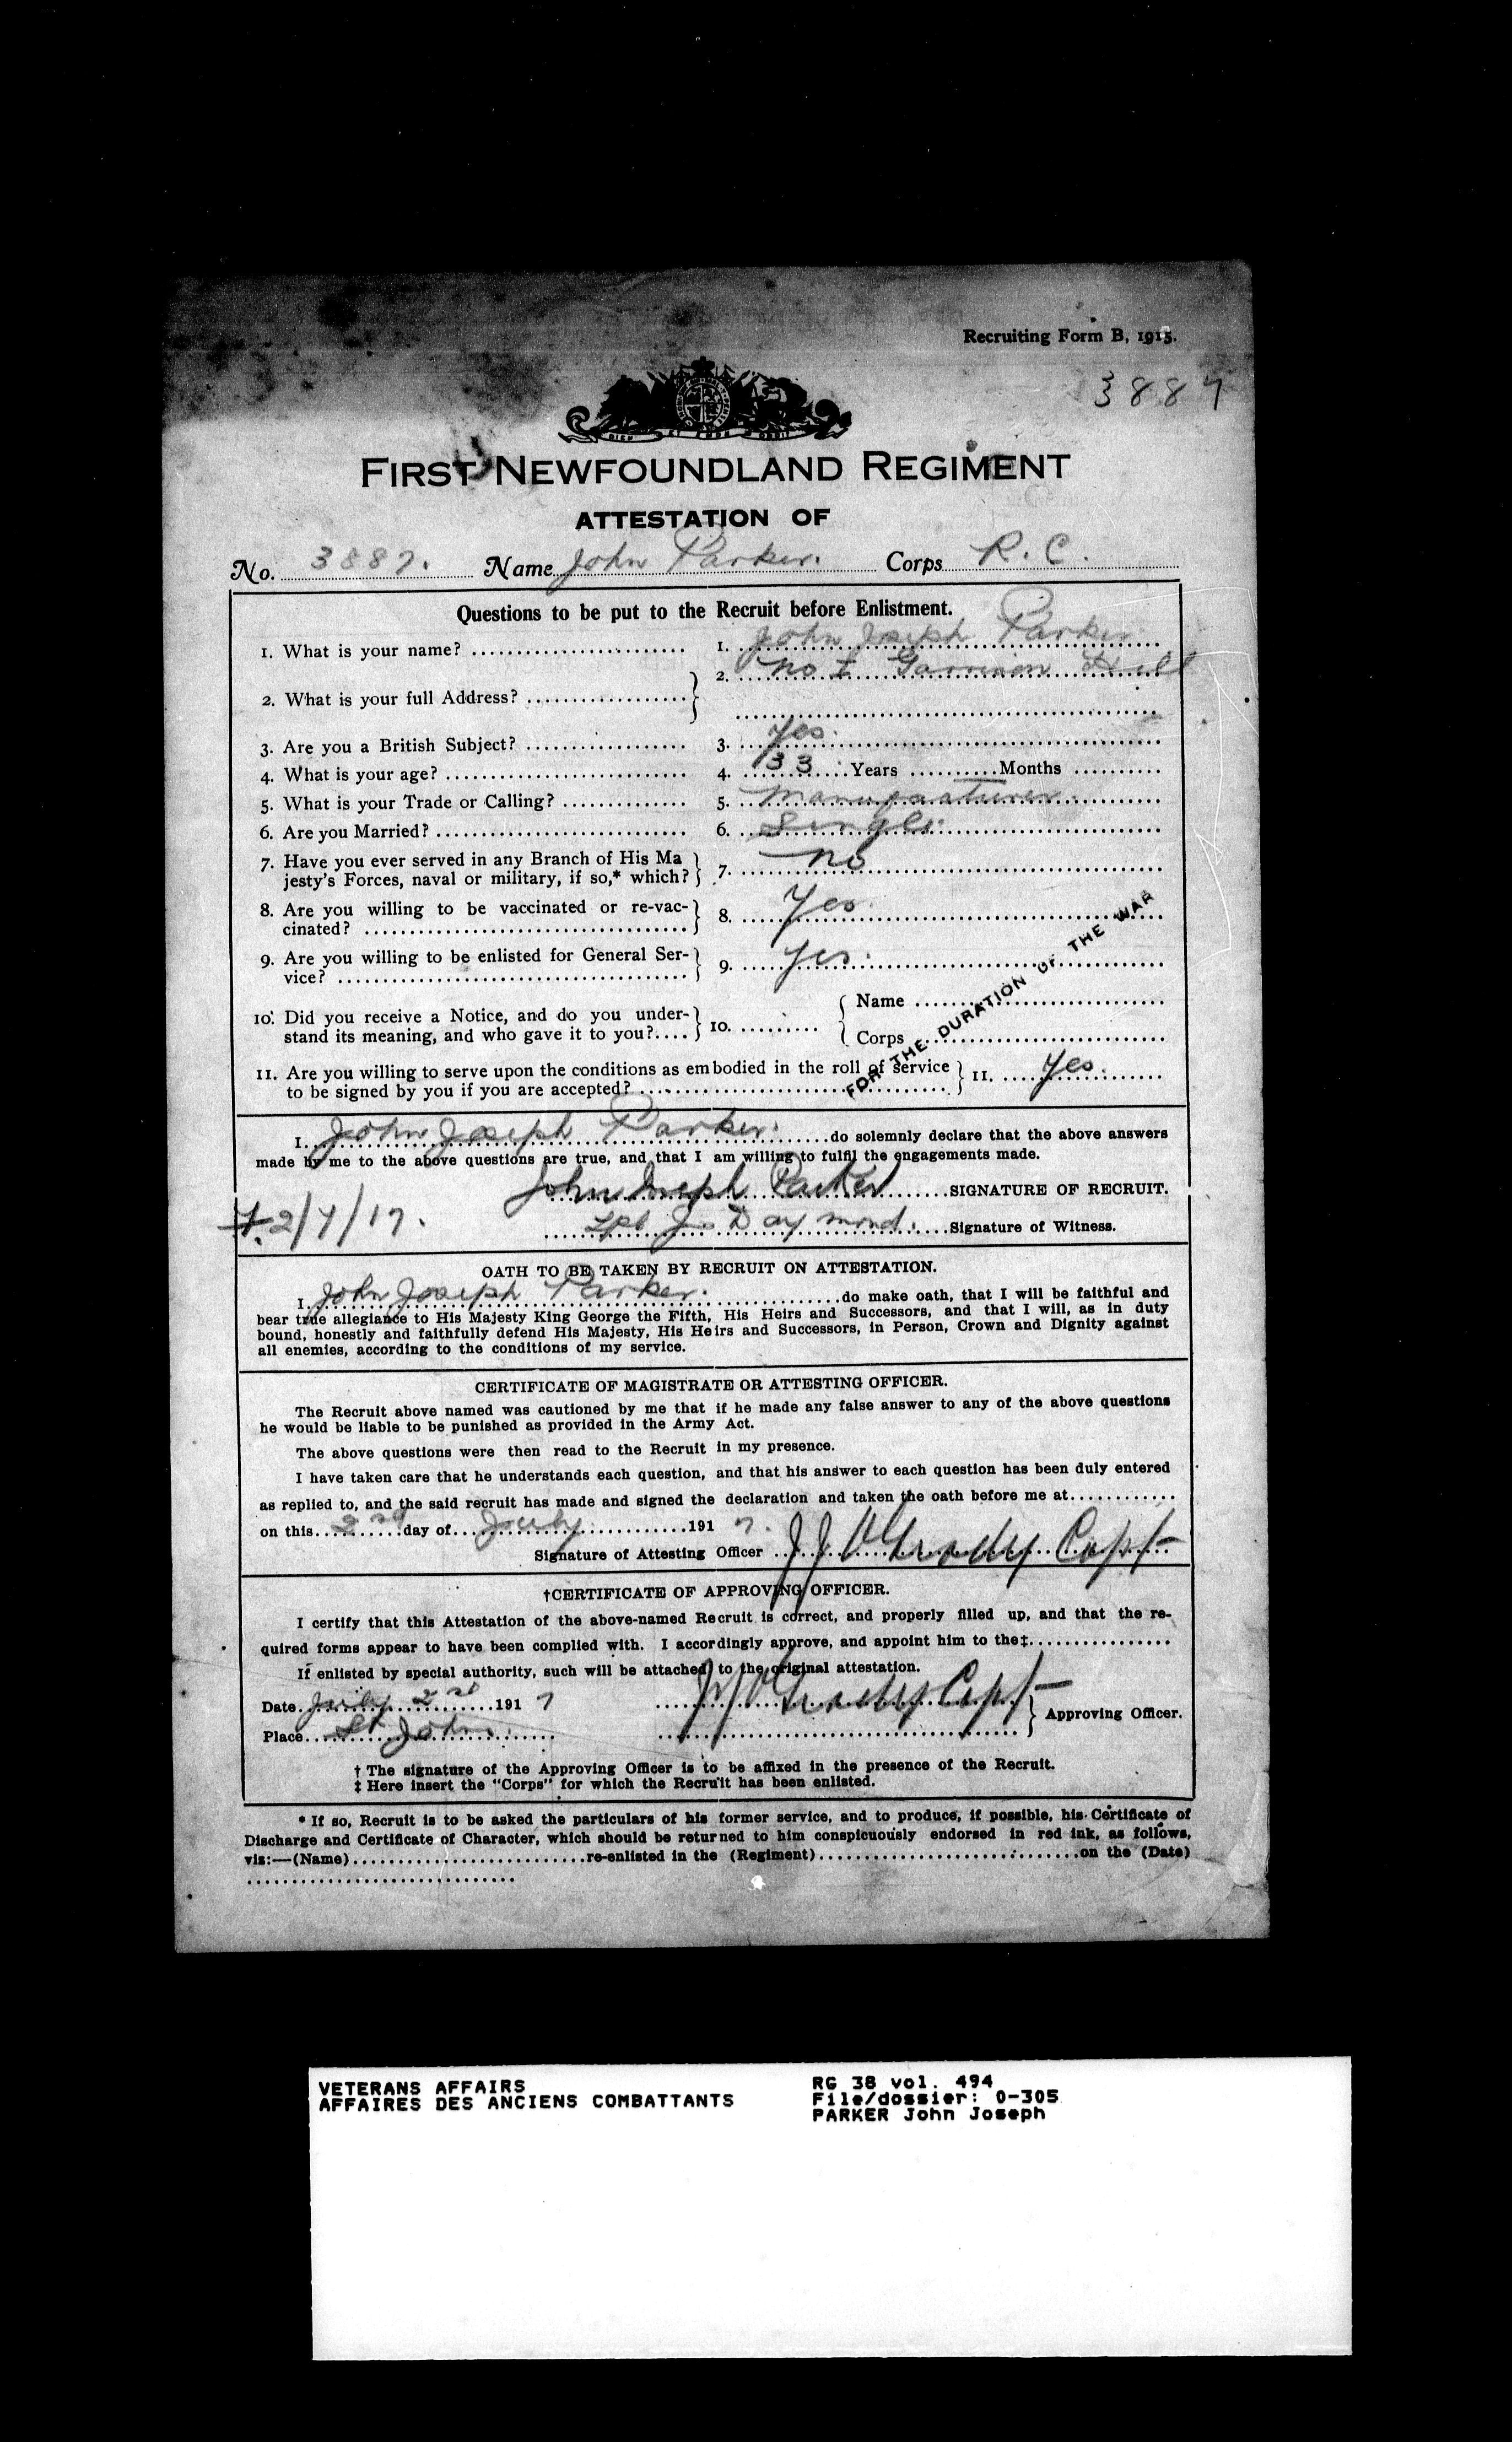 Recruiting Form B, 1915.
3887
DIEU ET MON DROIT
FIRST NEWFOUNDLAND REGIMENT
ATTESTATION OF
No. 3887. Name John Parker. Corps R. C.
Questions to be put to the Recruit before Enlistment.
1. What is your name? 1. John Joseph Parker
2. What is your full Address? 2. No I Garrison Hill
3. Are you a British Subject? 3. Yes.
4. What is your age? 4. 33 Years Months
5. What is your Trade or Calling? 5. Manufacturer.
6. Are you Married? 6. Single.
7. Have you ever served in any Branch of His Ma
jesty's Forces, naval or military, if so,* which? 7. No
8. Are you willing to be vaccinated or re-vac-
cinated? 8. Yes.
9. Are you willing to be enlisted for General Ser-
vice? 9. Yes.
10. Did you receive a Notice, and do you under-
stand its meaning, and who gave it to you? 10. Name
Corps
FOR THE DURATION OF THE WAR
11. Are you willing to serve upon the conditions as embodied in the roll of service
to be signed by you if you are accepted? 11. Yes.
I. John Joseph Parker. do solemnly declare that the above answers
made by me to the above questions are true, and that I am willing to fulfil the engagements made.
John Joseph Parker SIGNATURE OF RECRUIT.
2/7/17. J. Daymond. Signature of Witness.
OATH TO BE TAKEN BY RECRUIT ON ATTESTATION.
I. John Joseph Parker. do make oath, that I will be faithful and
bear true allegiance to His Majesty King George the Fifth, His Heirs and Successors, and that I will, as in duty
bound, honestly and faithfully defend His Majesty, His Heirs and Successors, in Person, Crown and Dignity against
all enemies, according to the conditions of my service.
CERTIFICATE OF MAGISTRATE OR ATTESTING OFFICER.
The Recruit above named was cautioned by me that if he made any false answer to any of the above questions
he would be liable to be punished as provided in the Army Act.
The above questions were then read to the Recruit in my presence.
I have taken care that he understands each question, and that his answer to each question has been duly entered
as replied to, and the said recruit has made and signed the declaration and taken the oath before me at
on this 2nd day of July 1917.
Signature of Attesting Officer J J O'Grady Capt
†CERTIFICATE OF APPROVING OFFICER.
I certify that this Attestation of the above-named Recruit is correct, and properly filled up, and that the re-
quired forms appear to have been complied with. I accordingly approve, and appoint him to the‡
If enlisted by special authority, such will be attached to the original attestation.
Date July 2nd 1917 J J O'Grady Capt
Approving Officer.
Place St John's
† The signature of the Approving Officer is to be affixed in the presence of the Recruit.
‡ Here insert the "Corps" for which the Recruit has been enlisted.
* If so, Recruit is to be asked the particulars of his former service, and to produce, if possible, his Certificate of
Discharge and Certificate of Character, which should be returned to him conspicuously endorsed in red ink, as follows,
viz:—(Name) re-enlisted in the (Regiment) on the (Date)
VETERANS AFFAIRS RG 38 vol. 494
AFFAIRES DES ANCIENS COMBATTANTS File/dossier: 0-305
PARKER John Joseph